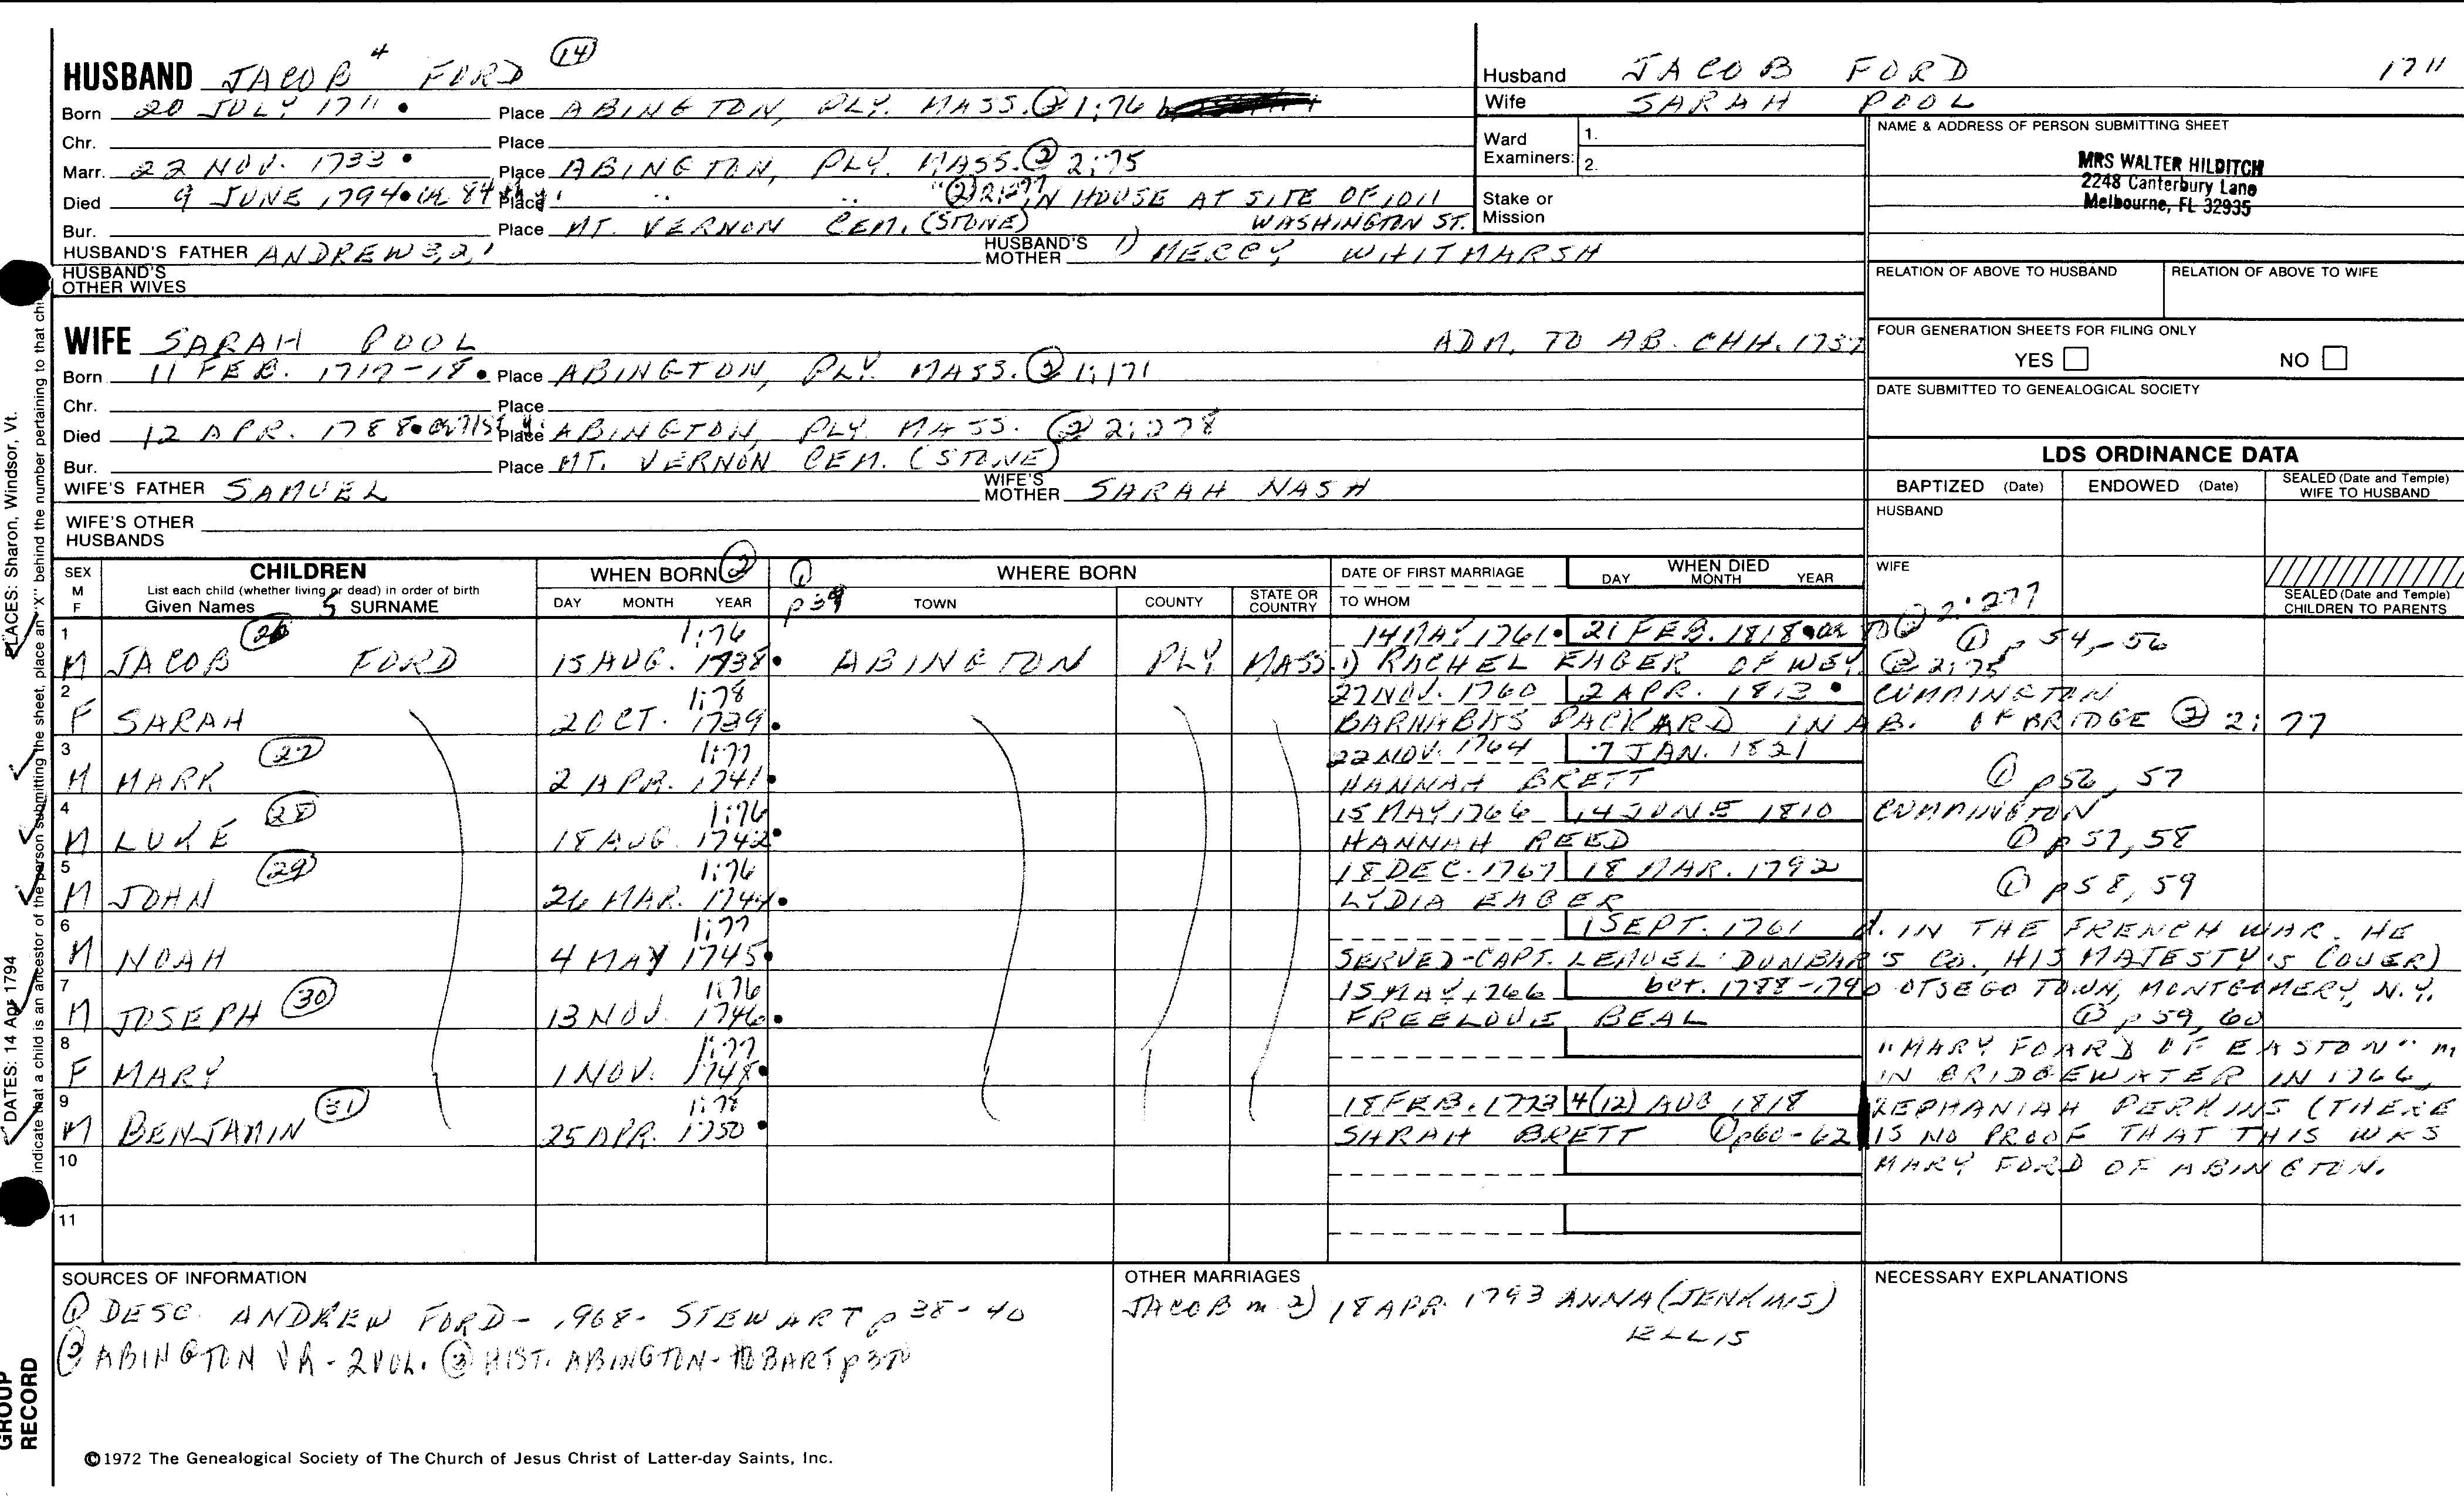 HUSBAND JACOB 4 FORD (14)
Born 20 JULY 1711 • Place ABINGTON, PLY. MASS. (2) 1:76
Chr. Place
Marr. 22 NOV. 1733 • Place ABINGTON, PLY. MASS. (2) 2:75
Died 9 JUNE 1794 • Place " " " (2) 2:277 IN HOUSE AT SITE OF 1011
WASHINGTON ST.
Bur. Place MT. VERNON CEM. (STONE)
HUSBAND'S FATHER ANDREW 3,2,1 HUSBAND'S MOTHER 1) MERCY WHITMARSH
HUSBAND'S OTHER WIVES
WIFE SARAH POOL ADM. TO AB. CHH. 1757
Born 11 FEB. 1717-18 • Place ABINGTON, PLY. MASS. (2) 1:171
Chr. Place
Died 12 APR. 1788 • Place ABINGTON, PLY. MASS. (2) 2:278
Bur. Place MT. VERNON CEM. (STONE)
WIFE'S FATHER SAMUEL WIFE'S MOTHER SARAH NASH
WIFE'S OTHER HUSBANDS
Husband JACOB FORD 1711
Wife SARAH POOL
Ward Examiners: 1.
2.
Stake or Mission
NAME & ADDRESS OF PERSON SUBMITTING SHEET
MRS WALTER HILDITCH
2248 Canterbury Lane
Melbourne, FL 32935
RELATION OF ABOVE TO HUSBAND RELATION OF ABOVE TO WIFE
FOUR GENERATION SHEETS FOR FILING ONLY
YES NO
DATE SUBMITTED TO GENEALOGICAL SOCIETY
LDS ORDINANCE DATA
BAPTIZED (Date) ENDOWED (Date) SEALED (Date and Temple) WIFE TO HUSBAND
HUSBAND
WIFE
SEALED (Date and Temple) CHILDREN TO PARENTS
SEX M F CHILDREN WHEN BORN (2) (1) p39 WHERE BORN DATE OF FIRST MARRIAGE WHEN DIED
List each child (whether living or dead) in order of birth
Given Names 5 SURNAME DAY MONTH YEAR TOWN COUNTY STATE OR COUNTRY TO WHOM DAY MONTH YEAR
1 (26) 1:76 14 MAY 1761 • 21 FEB. 1818 • (2) 2:277 (1) p 54,-56
M JACOB FORD 15 AUG. 1738 • ABINGTON PLY MASS. 1) RACHEL EAGER OF WEY. (2) 2:75
2 1:78 27 NOV. 1760 2 APR. 1813 • CUMMINGTON
F SARAH 2 OCT. 1739 • BARNABAS PACKARD IN AB. OF BRIDGE (2) 2:77
3 (27) 1:77 22 NOV. 1764 7 JAN. 1821
M MARK 2 APR. 1741 • HANNAH BRETT (1) p56, 57
4 (28) 1:76 15 MAY 1766 14 JUNE 1810 CUMMINGTON
M LUKE 18 AUG. 1742 • HANNAH REED (1) p57, 58
5 (29) 1:76 18 DEC. 1767 18 MAR. 1792
M JOHN 26 MAR. 1744 • LYDIA EAGER (1) p58, 59
6 1:77 1 SEPT. 1761 d. IN THE FRENCH WAR. HE
M NOAH 4 MAY 1745 • SERVED-CAPT. LEMUEL DUNBAR'S CO., HIS MAJESTY'S (OVER)
7 (30) 1:76 15 MAY 1766 bet. 1788-1790 OTSEGO TOWN, MONTGOMERY, N.Y.
M JOSEPH 13 NOV. 1746 • FREELOVE BEAL (1) p 59, 60
8 1:77 "MARY FOARD OF EASTON" m
F MARY 1 NOV. 1748 • IN BRIDGEWATER IN 1766,
9 (31) 1:78 18 FEB. 1773 4(12) AUG 1818 ZEPHANIAH PERKINS (THERE
M BENJAMIN 25 APR. 1750 • SARAH BRETT (1) p60-62 IS NO PROOF THAT THIS WAS
10 MARY FORD OF ABINGTON.
11
SOURCES OF INFORMATION
(1) DESC. ANDREW FORD - 1968 - STEWART p 38-40
(2) ABINGTON VR - 2 VOL. (3) HIST. ABINGTON - HOBART
OTHER MARRIAGES
JACOB m 2) 18 APR. 1793 ANNA (JENKINS)
ELLIS
NECESSARY EXPLANATIONS
©1972 The Genealogical Society of The Church of Jesus Christ of Latter-day Saints, Inc.
PLACES: Sharon, Windsor, Vt.
DATES: 14 Apr 1794
indicate that a child is an ancestor of the person submitting the sheet, place an "X" behind the number pertaining to that
GROUP
RECORD